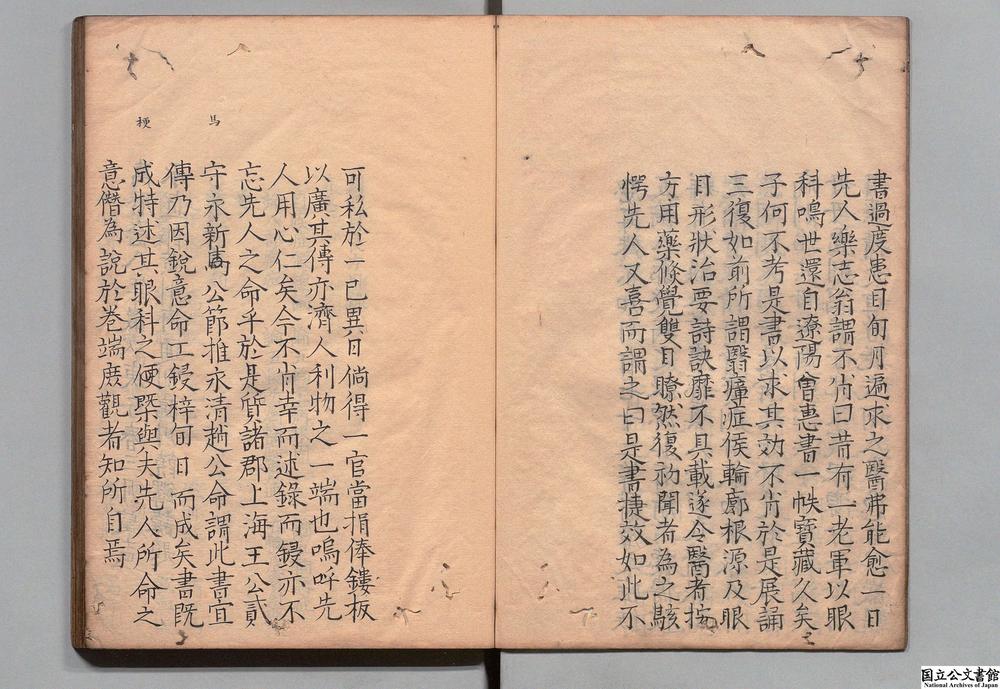 書過度患目旬月遍求之醫弗能愈一日
先人樂志翁謂不肖曰昔有一老軍以眼
科鳴世還自遼陽會惠書一帙寶藏久矣
子何不考是書以求其効不肖於是展誦
三復如前所謂翳瘴症候輪廓根源及眼
目形狀治要詩訣靡不具載遂令醫者按
方用藥倏覺雙目瞭然復初聞者為之駭
愕先人又喜而謂之曰是書捷效如此不
可私於一已異日倘得一官當捐俸鏤板
以廣其傳亦濟人利物之一端也嗚呼先
人用心仁矣今不肖幸而述錄而鋟亦不
忘先人之命乎於是質諸郡上海王公貳
守永新馬公節推永清趙公命謂此書宜
傳乃因銳意命工鋟梓旬日而成矣書既
成特述其眼科之便槩與夫先人所命之
意僭為說於卷端庶觀者知所自焉
馬
梗
国立公文書館
National Archives of Japan